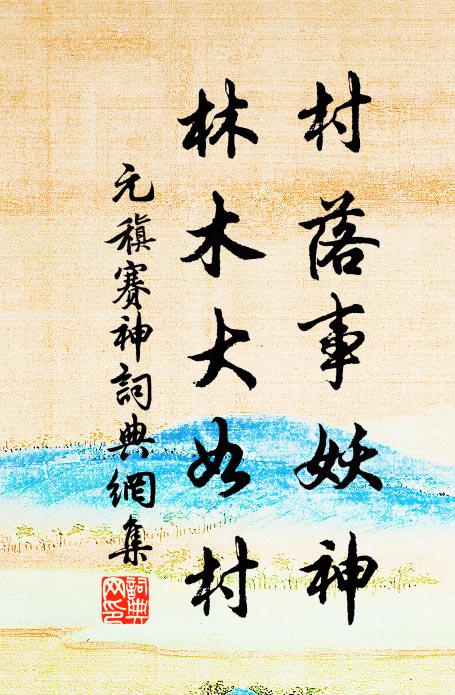 村落事妖神
林木大如村
元稹賽神詞典網集
詞典網印